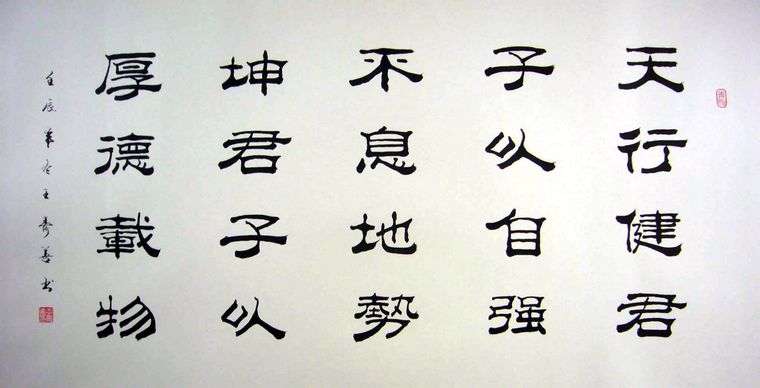 天行健君
子以自强
不息地勢
坤君子以
厚德載物
壬辰 冬王 善书